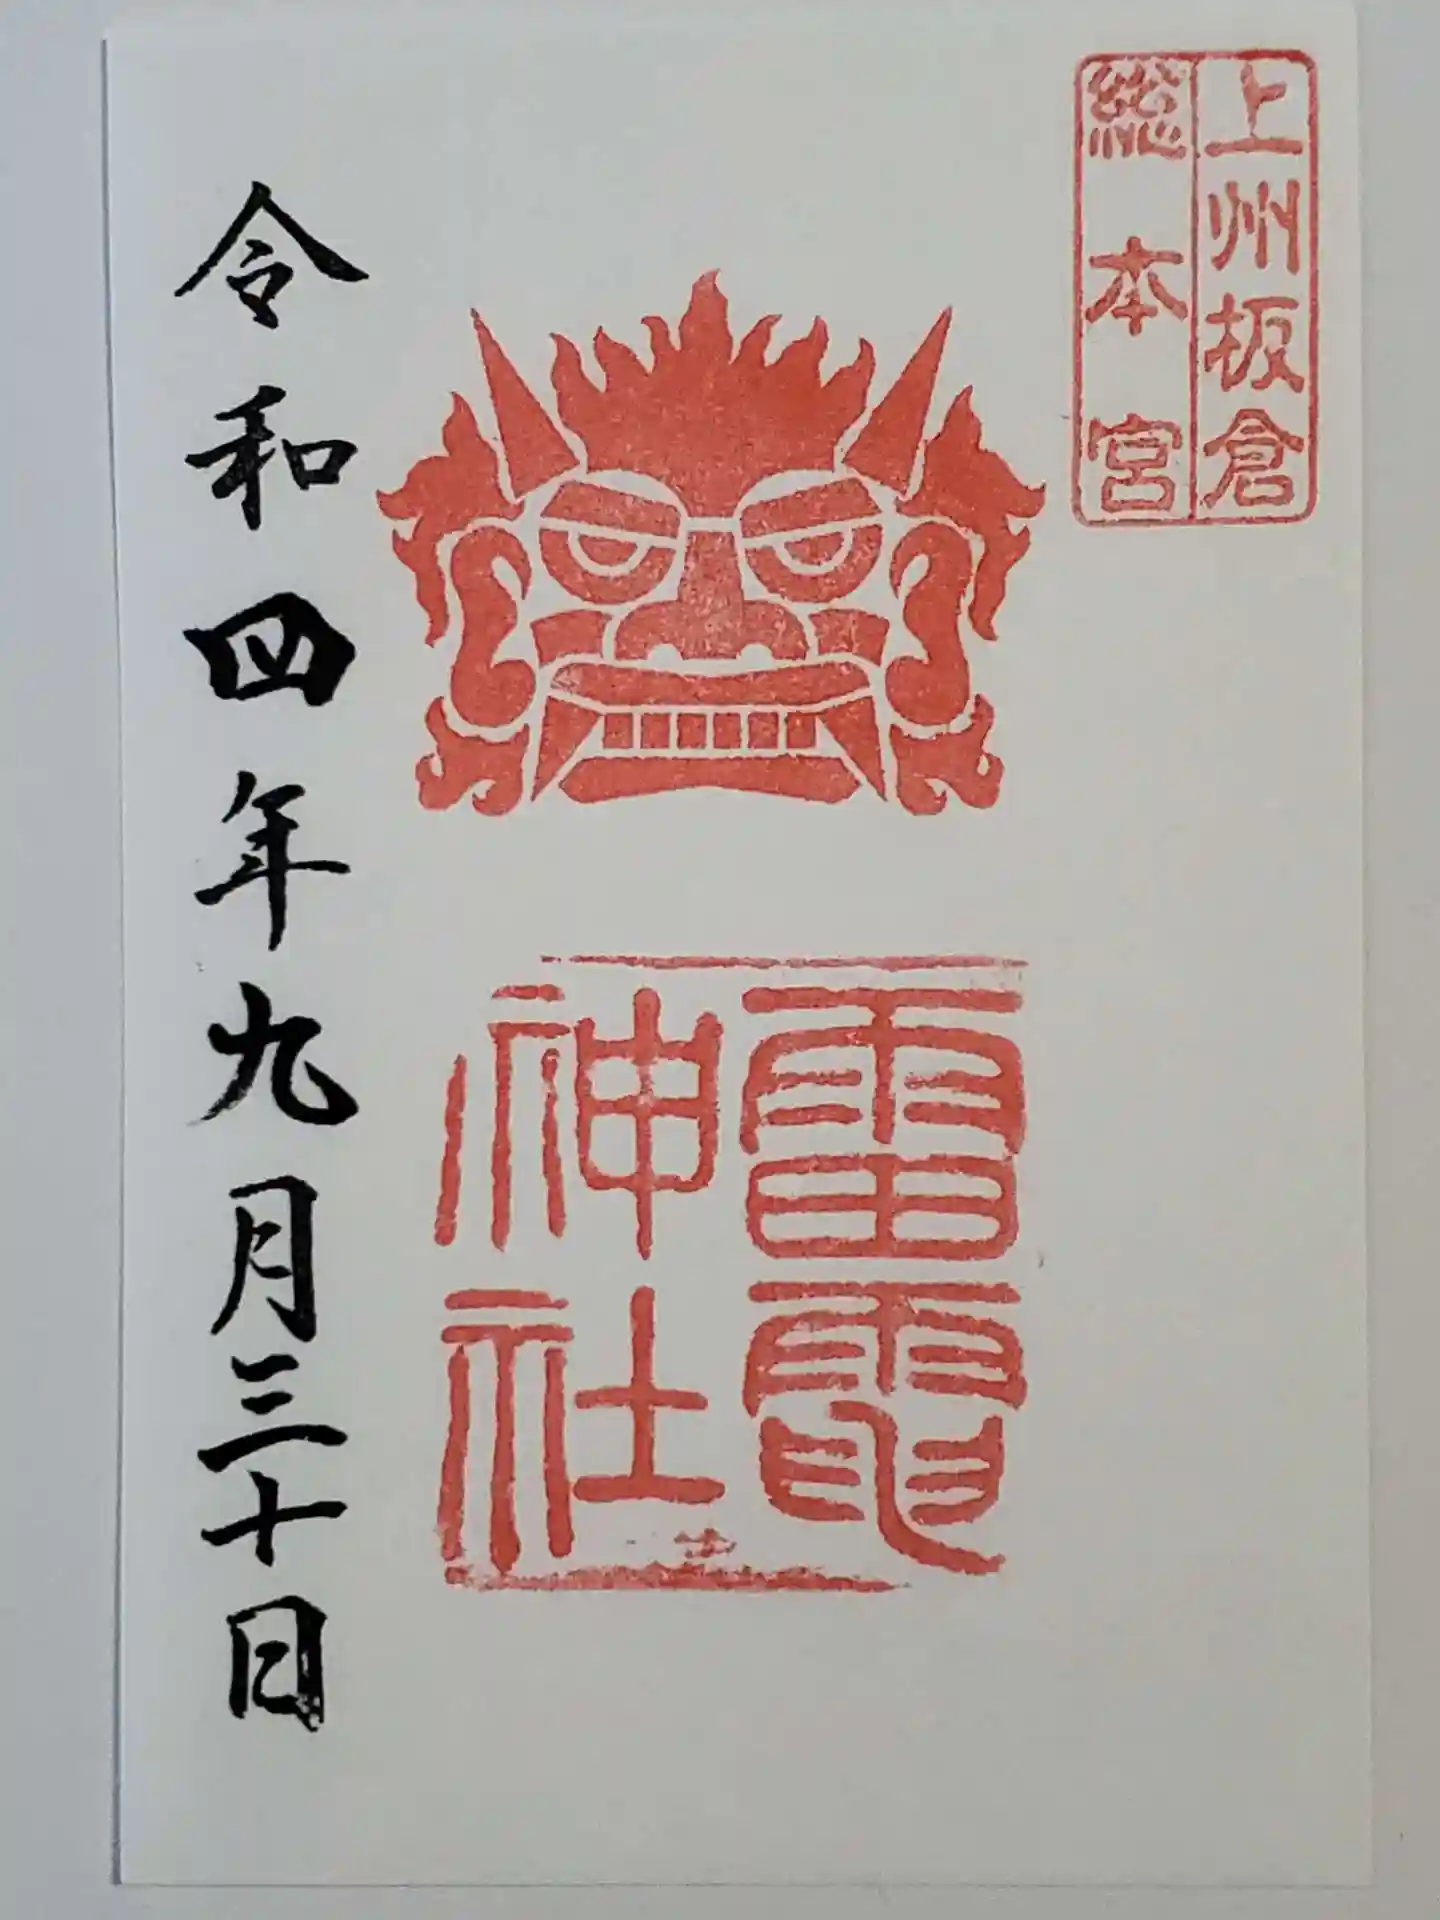 上州板倉
総本宮
雷電
神社
令和四年九月三十日